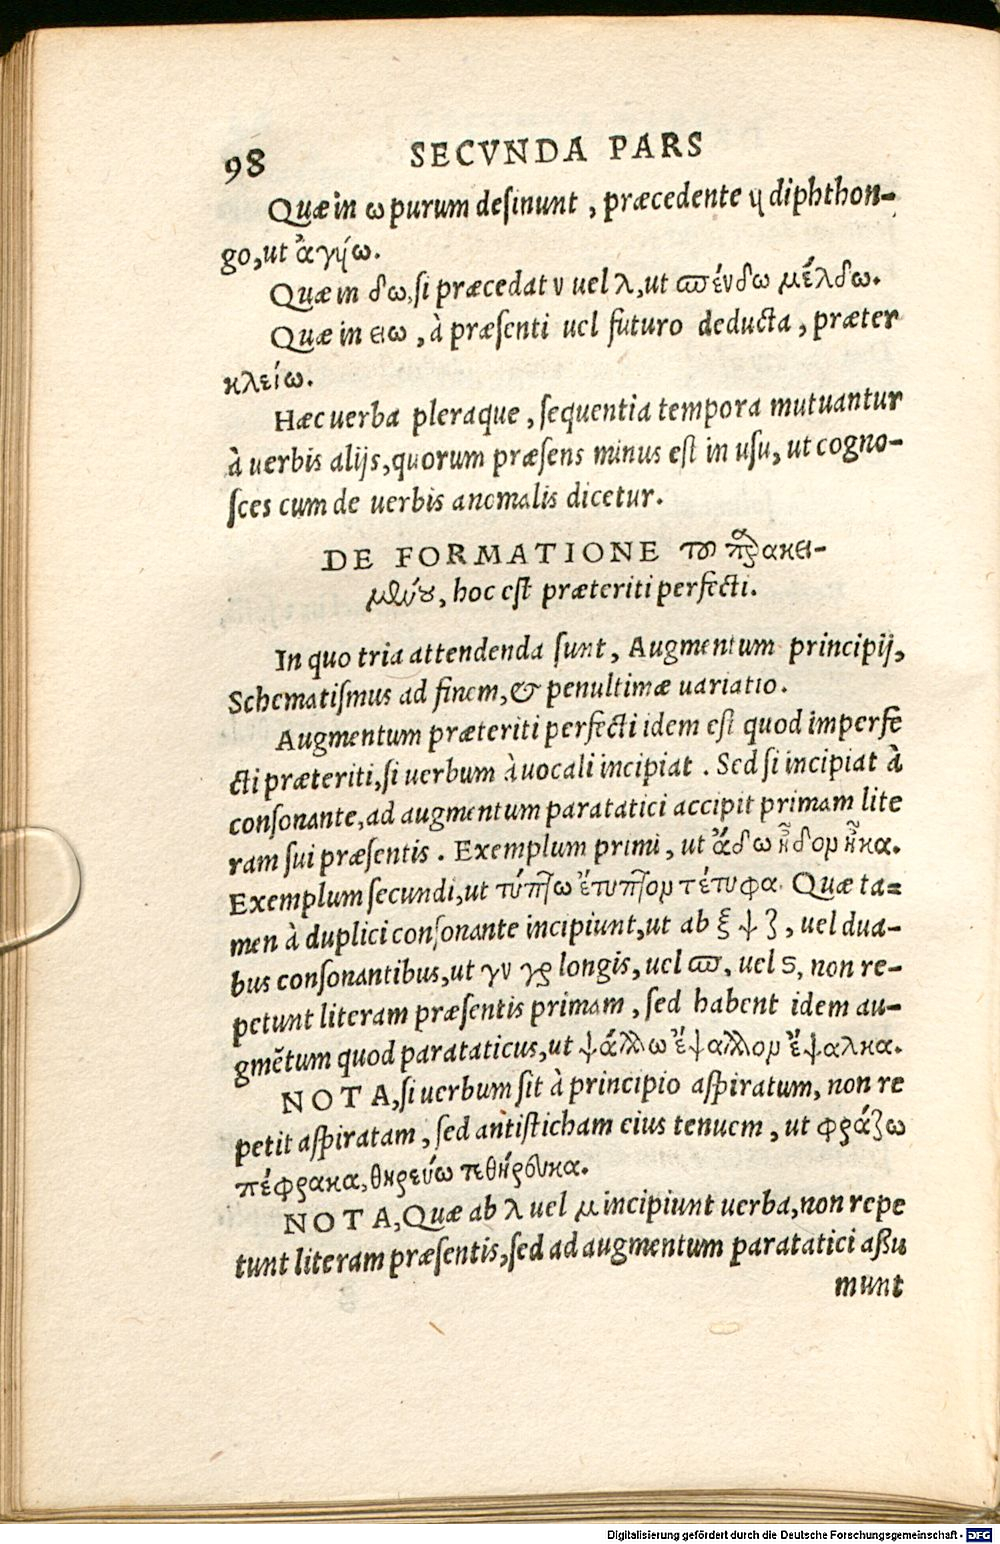 98 SECVNDA PARS
Quæ in ω purum desinunt, præcedente η diphthon-
go, ut ἀγήω.
Quæ in δω, si præcedat ν uel λ, ut σπένδω μέλδω.
Quæ in ειω, à præsenti uel futuro deducta, præter
κλείω.
Hæc uerba pleraque, sequentia tempora mutuantur
à uerbis alijs, quorum præsens minus est in usu, ut cogno-
sces cum de uerbis anomalis dicetur.
DE FORMATIONE τοῦ παρακει-
μένου, hoc est præteriti perfecti.
In quo tria attendenda sunt, Augmentum principij,
Schematismus ad finem, & penultimæ uariatio.
Augmentum præteriti perfecti idem est quod imperfe
cti præteriti, si uerbum à uocali incipiat. Sed si incipiat à
consonante, ad augmentum paratatici accipit primam lite
ram sui præsentis. Exemplum primi, ut ἄδω ἦδον ἦκα.
Exemplum secundi, ut τύπτω ἔτυπτον τέτυφα. Quæ ta=
men à duplici consonante incipiunt, ut ab ξ ψ ζ, uel dua-
bus consonantibus, ut γν γρ longis, uel σπ, uel ϛ, non re-
petunt literam præsentis primam, sed habent idem au-
gmẽtum quod parataticus, ut ψάλλω ἔψαλλον ἔψαλκα.
NOTA, si uerbum sit à principio aspiratum, non re
petit aspiratam, sed antisticham eius tenuem, ut φράζω
πέφρακα, θηρεύω τεθήρευκα.
NOTA, Quæ ab λ uel μ incipiunt uerba, non repe
tunt literam præsentis, sed ad augmentum paratatici aßu
munt
Digitalisierung gefördert durch die Deutsche Forschungsgemeinschaft - DFG